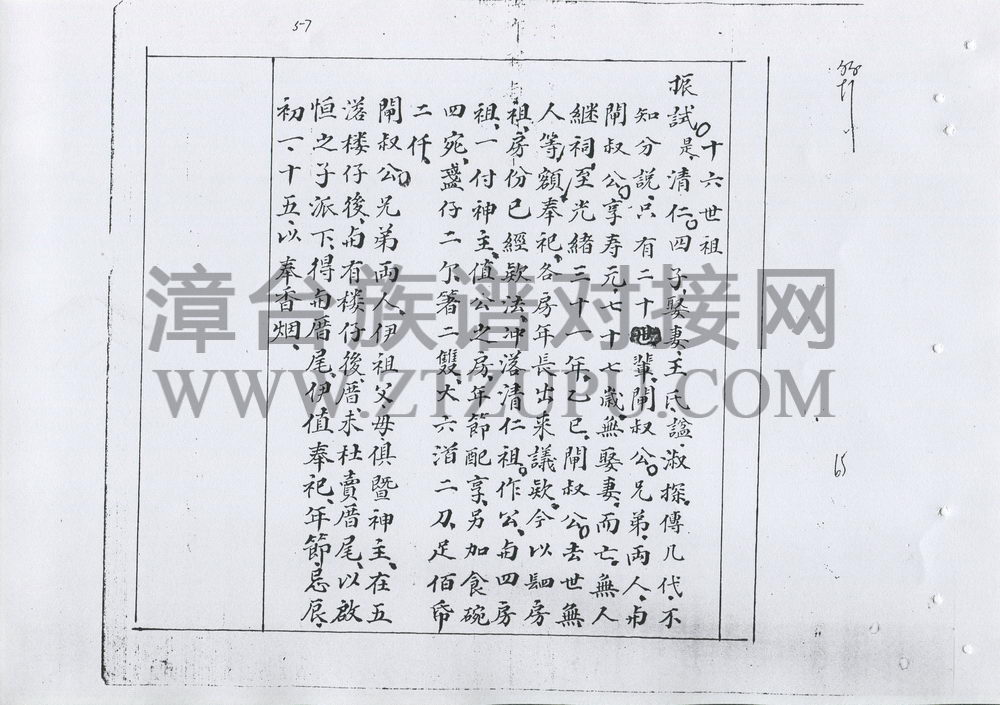 57
十六世祖
振試是清仁四子娶妻王氏諡淑探傳几代不
知分說只有二十世輩閙叔公兄弟両人
閙叔公享寿元七十七歲無娶妻而亡無人
継祠至光緒三十一年乙巳閙叔公去世無
人等額奉祀各房年長出来議欵今以四房
祖房份已經欵法冲落清仁祖作公四房
祖一付神主值公之房年節配享另加食碗
四宛盞仔二尔箸二雙大六㳻二刀足佰帋
二仟
閙叔公兄弟両人伊祖父母俱暨神主在五
落楼仔後有楼仔後厝求杜賣厝尾以啟
恒之子派下得厝尾伊值奉祀年節忌辰
初一十五以奉香烟
65
漳台族谱对接网
WWW.ZTZUPU.COM